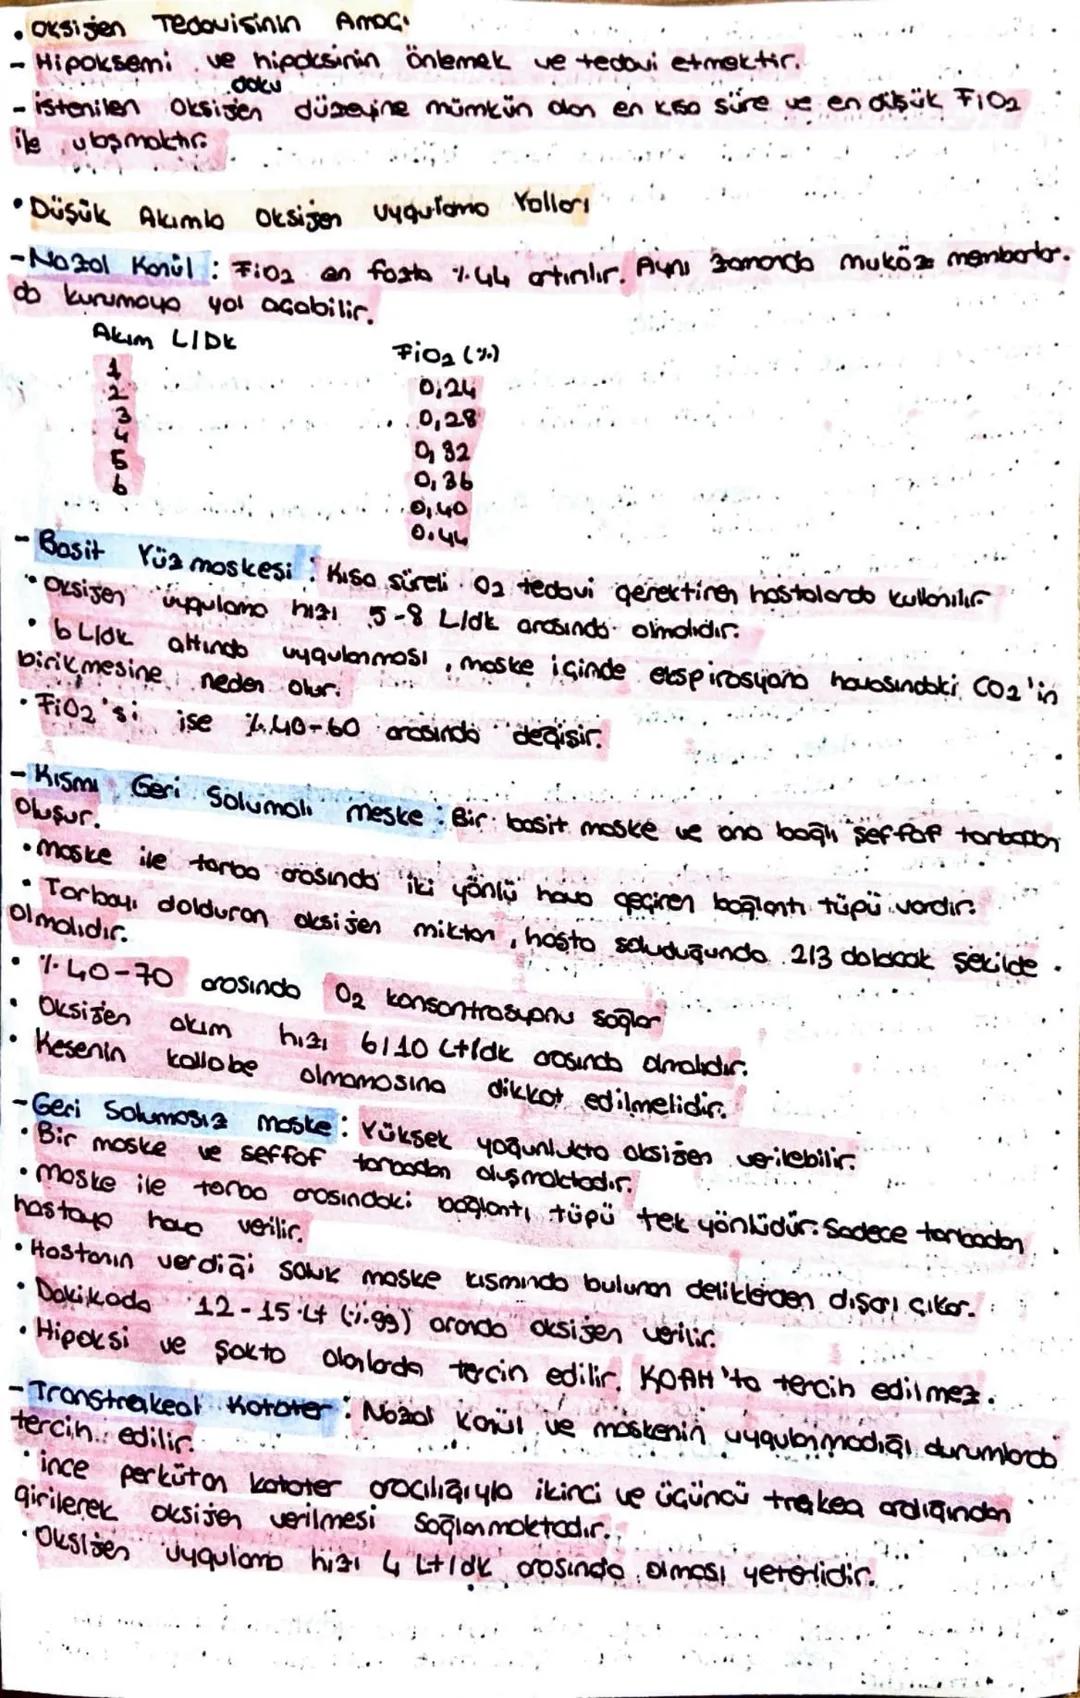 • Oksijen Tedavisinin Amacı
- Hipoksemi ve hipoksinin önlemek ve tedavi etmektir.
doku
- istenilen Oksijen düzeyine mümkün olan en kısa süre ve en düşük FiO2
ile ulaşmaktır.
• Düşük Akımla Oksijen Uygulama Yolları
- Nazal Kanül : FiO2 en fazla %44 artırılır. Aynı zamanda muköz membranlar.
da kurumaya yol açabilir.
Akım L/Dk FiO2 (%)
1 0,24
2 0,28
3 0,32
4 0,36
5 0,40
6 0.44
- Basit Yüz maskesi : Kısa süreli O2 tedavi gerektiren hastalarda kullanılır
• Oksijen uygulama hızı 5-8 L/dk arasında olmalıdır.
• 6 L/dk altında uygulanması, maske içinde ekspirasyona havasındaki CO2'in
birikmesine neden olur.
• FiO2'si ise %40-60 arasında değişir.
- Kısmı Geri Solumalı meske : Bir basit maske ve ona bağlı şeffaf torbadan
oluşur.
• maske ile torba arasında iki yönlü hava geçiren bağlantı tüpü vardır.
• Torbayı dolduran oksijen miktarı, hasta soluduğunda 2/3 dolacak şekilde
olmalıdır.
• %40-70 arasında O2 konsantrasyonu sağlar
• Oksijen akım hızı 6/10 Lt/dk arasında olmalıdır.
• Kesenin kollobe olmamasına dikkat edilmelidir.
- Geri Solumasız maske : Yüksek yoğunlukta oksijen verilebilir.
• Bir maske ve seffaf torbadan oluşmaktadır.
• Maske ile torba arasındaki bağlantı tüpü tek yönlüdür. Sadece torbadan
hastaya hava verilir.
• Hastanın verdiği soluk maske kısmında bulunan deliklerden dışarı çıkar.
• Dakikada 12-15 Lt (%99) oranda oksijen verilir.
• Hipoksi ve şokta olanlarda tercin edilir. KOAH'ta tercih edilmez.
- Transtrakeal Katater : Nazal kanül ve maskenin uygulanmadığı durumlarda
tercih edilir.
• ince perkütan katater aracılığıyla ikinci ve üçüncü trakea aralığından
girilerek oksijen verilmesi sağlanmaktadır.
• Oksijen uygulama hızı 4 Lt/dk arasında olması yeterlidir.